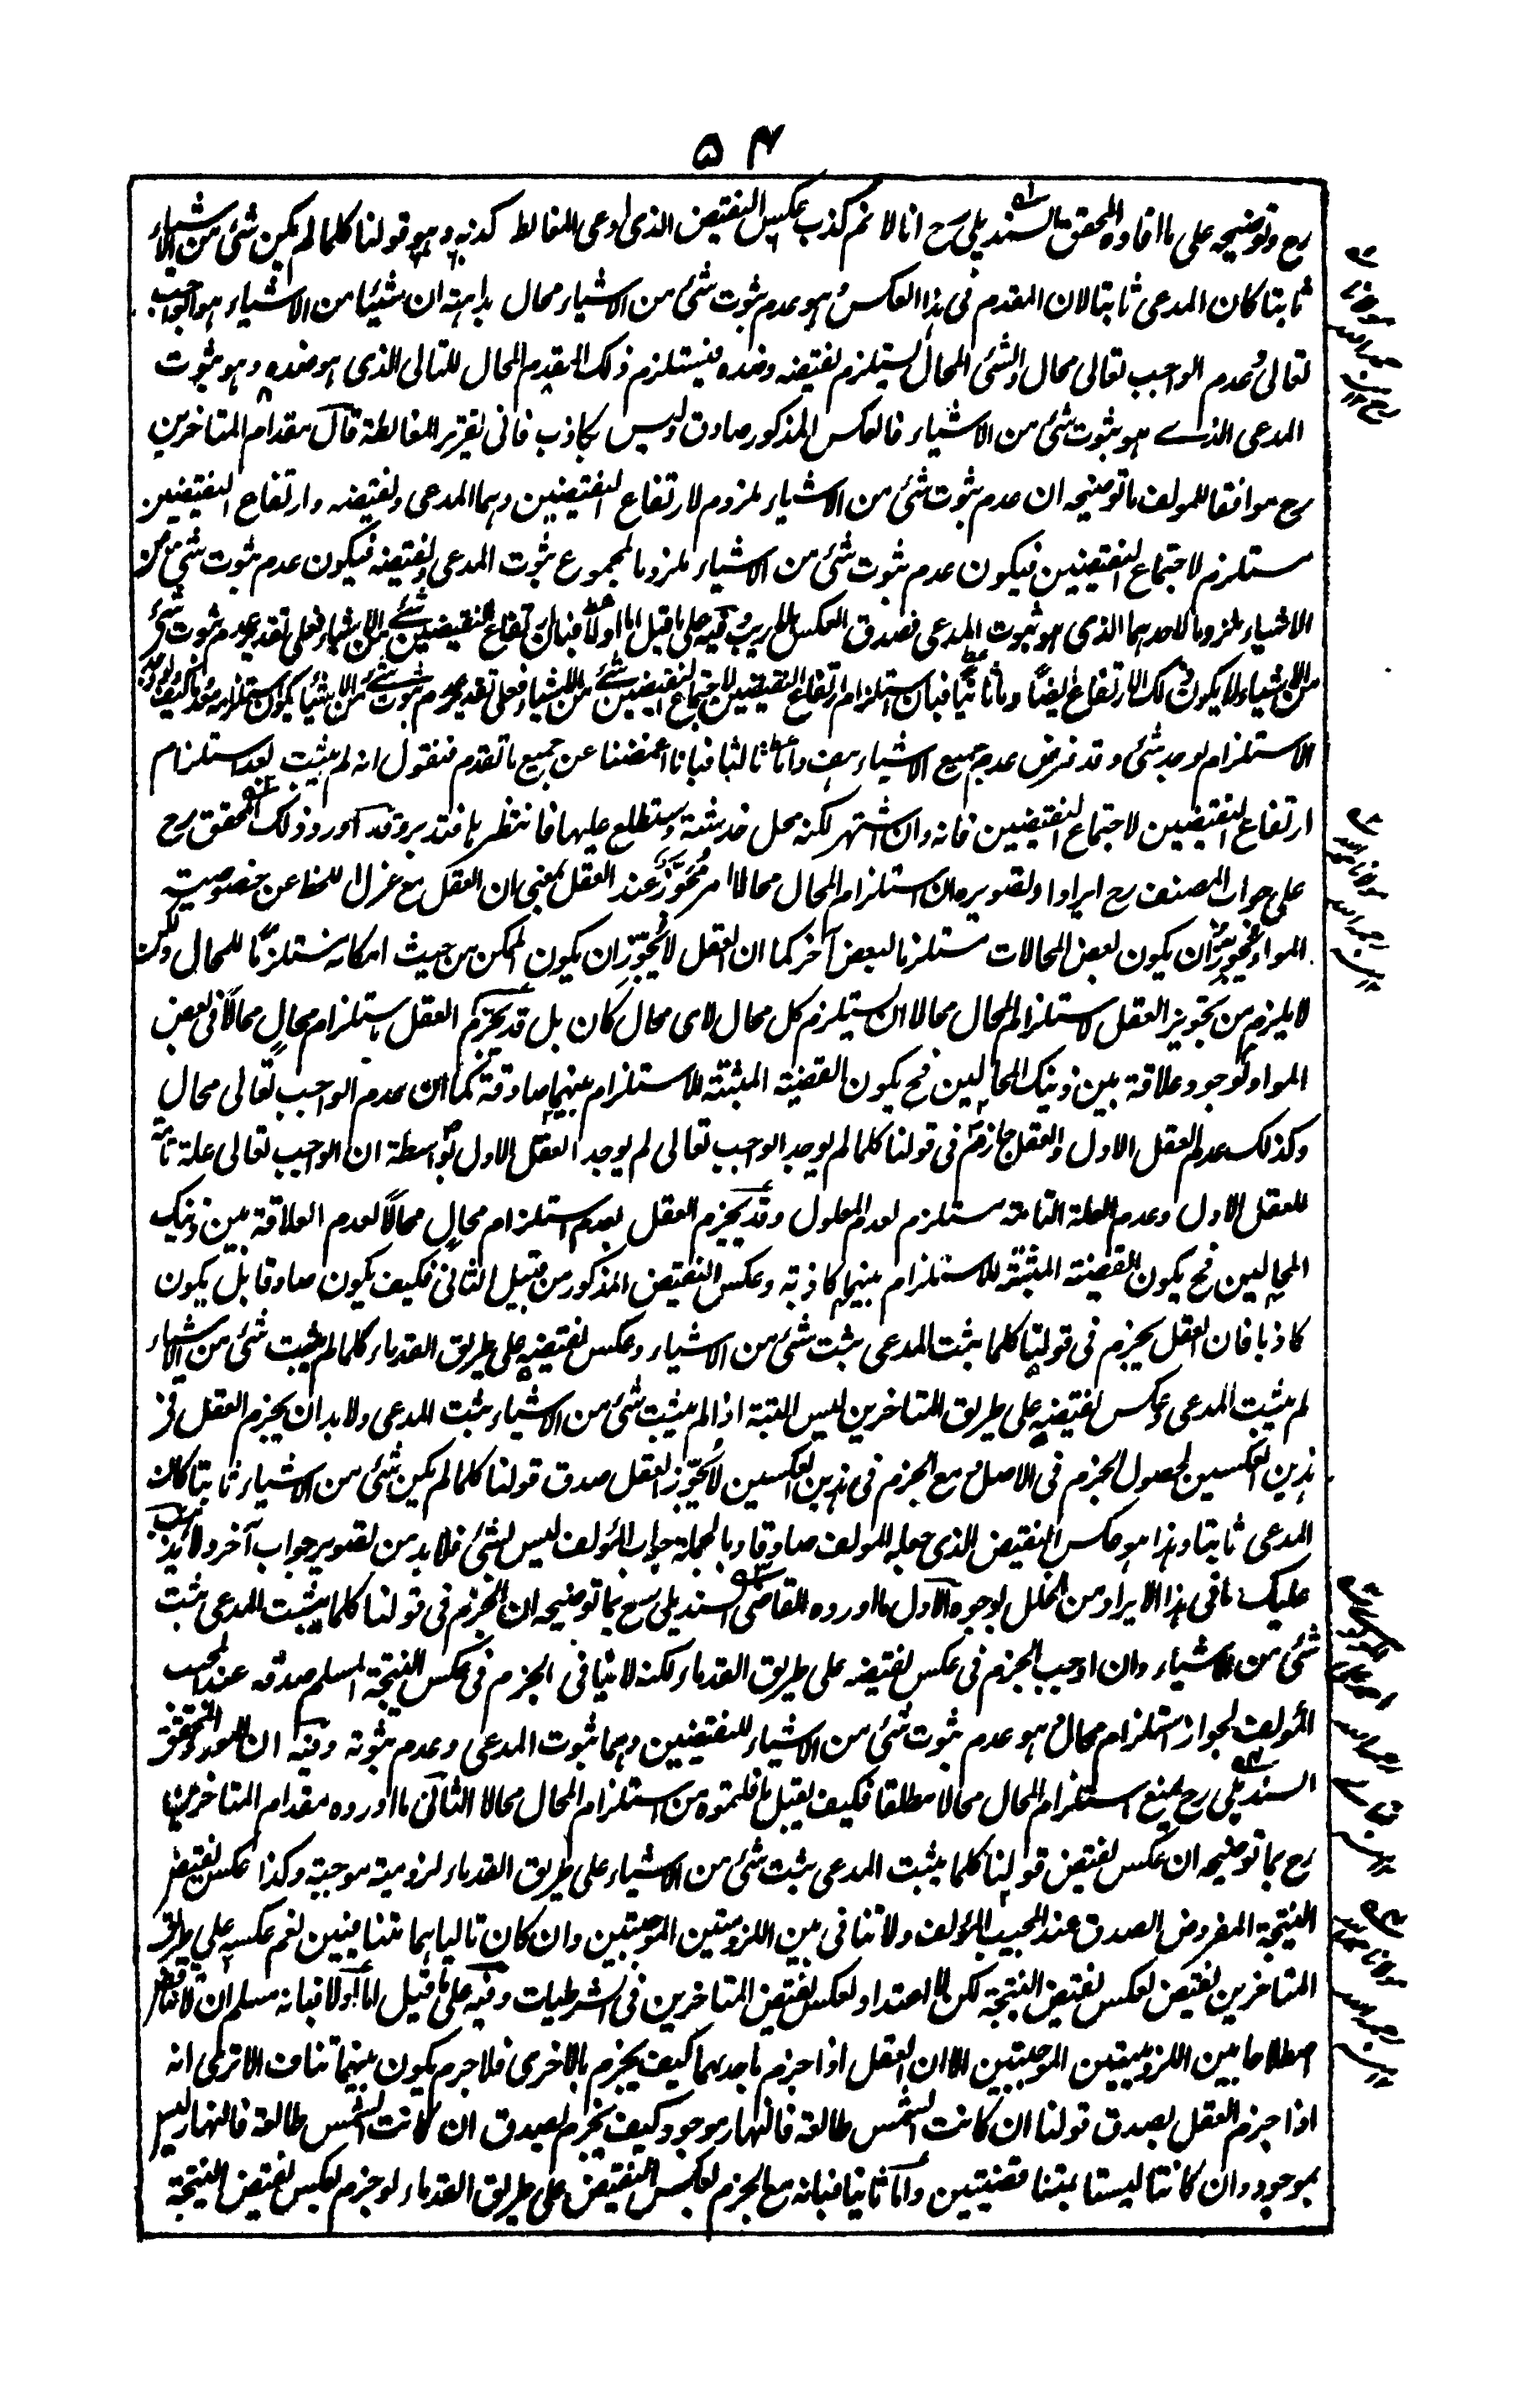 ۵۴
رح وتوضيحه على ما افاده المحقق السنديلي رح انا لا نم كذب عكس النقيض الذى ادعى المغالط كذبه وهو قولنا كلما لم يكن شئ من الاشياء
ثابتا كان المدعى ثابتا لان المقدم فى هذا العكس وهو عدم ثبوت شئ من الاشياء محال بداهته ان شيئا من الاشياء هو الواجب
تعالى وعدم الواجب تعالى محال والشئ المحال يستلزم نقيضه وضده فيستلزم ذلك المقدم المحال للتالى الذى هو ضده وهو ثبوت
المدعى الذى هو ثبوت شئ من الاشياء فالعكس المذكور صادق وليس بكاذب فانى تقرير المغالطة قال مقدام المتاخرين
رح موافقا للمولف ما توضيحه ان عدم ثبوت شئ من الاشياء ملزوم لارتفاع النقيضين وهما المدعى ونقيضه وارتفاع النقيضين
مستلزم لاجتماع النقيضين فيكون عدم ثبوت شئ من الاشياء ملزوما لمجموع ثبوت المدعى ونقيضه فيكون عدم ثبوت شئ من
الاشياء ملزوما لاحدهما الذى هو ثبوت المدعى فصدق العكس بلا ريب وفيه على ما قيل اما اولا فبان ارتفاع النقيضين شئ من الاشياء فعلى تقدير عدم ثبوت شئ
من الاشياء لا يكون ذلك الارتفاع ايضا واما ثانيا فبان استلزام ارتفاع النقيضين لاجتماع النقيضين شئ من الاشياء فعلى تقدير عدم ثبوت شئ من الاشياء يكون استلزامه
الاستلزام لوجد شئ وقد فرض عدم جميع الاشياء هف واما ثالثا فبانا اغمضنا عن جميع ما تقدم فنقول انه لم يثبت بعد استلزام
ارتفاع النقيضين لاجتماع النقيضين فانه وان اشتهر لكنه محل خدشة وستطلع عليها فانتظر بل فتدبر وقد اورد ذلك المحقق رح
على جواب المصنف رح ايرادا وتصويره ان استلزام المحال محالا امر مُجوَّز عند العقل بمعنى ان العقل مع عزل اللحظ عن خصوصية
المواد يجوز ان يكون بعض المحالات مستلزما لبعض آخر كما ان العقل لا يُجوّز ان يكون الممكن من حيث امكانه مستلزما للمحال ولكن
لا يلزم من تجويز العقل لاستلزام المحال محالا ان يستلزم كل محال لاى محال كان بل قد يجزم العقل باستلزام محالٍ محالاً فى بعض
المواد لوجود علاقة بين ذينك المحالين فح يكون القضية المثبتة للاستلزام بينهما صادقة كما ان عدم الواجب تعالى محال
وكذلك عدم العقل الاول والعقل جازم فى قولنا كلما لم يوجد الواجب تعالى لم يوجد العقل الاول بواسطة ان الواجب تعالى علة تامة
للعقل الاول وعدم العلة التامة مستلزم لعدم المعلول وقد يجزم العقل بعدم استلزام محالٍ محالاً لعدم العلاقة بين ذينك
المحالين فح يكون القضية المثبتة للاستلزام بينهما كاذبة وعكس النقيض المذكور من قبيل الثانى فكيف يكون صادقا بل يكون
كاذبا فان العقل يجزم فى قولنا كلما يثبت المدعى يثبت شئ من الاشياء وعكس نقيضه على طريق القدماء كلما لم يثبت شئ من الاشياء
لم يثبت المدعى وعكس نقيضه على طريق المتاخرين ليس البتة اذا لم يثبت شئ من الاشياء يثبت المدعى ولا بد ان يجزم العقل فى
هذين العكسين لحصول الجزم فى الاصل مع الجزم فى هذين العكسين لا يُجوّز العقل صدق قولنا كلما لم يكن شئ من الاشياء ثابتا كان
المدعى ثابتا وهذا هو عكس النقيض الذى جعله المولف صادقا وبالجملة جواب المؤلف ليس بشئ فلا بد من تصوير جواب آخر ولا يذهب
عليك ما فى هذا الايراد من الخلل لوجوه الاول ما اورده القاضى السنديلى سع بما توضيحه ان الجزم فى قولنا كلما يثبت المدعى يثبت
شئ من الاشياء وان اوجب الجزم فى عكس نقيضه على طريق القدماء لكنه لا ينافى الجزم فى عكس النتيجة المسلم صدقه عند المجيب
المؤلف لجواز استلزام محال هو عدم ثبوت شئ من الاشياء للنقيضين وهما ثبوت المدعى وعدم ثبوته وفيه ان المورد المحقق
السنديلى رح يمنع استلزام المحال محالا مطلقا فكيف يقبل ما قلتموه من استلزام المحال محالا الثانى ما اورده مقدام المتاخرين
رح بما توضيحه ان عكس نقيض قولنا كلما يثبت المدعى يثبت شئ من الاشياء على طريق القدماء لزومية موجبة وكذا عكس نقيض
النتيجة المفروض الصدق عند المجيب المؤلف ولا تنافى بين اللزوميتين الموجبتين وان كان تالياهما متنافيين نعم عكسه على طريق
المتاخرين نقيض لعكس نقيض النتيجة لكن لا اعتداد لعكس نقيض المتاخرين فى الشرطيات وفيه على ما قيل اما اولا فبانه مسلم ان لا تناقض
اصطلاحا بين اللزوميتين الموجبتين الا ان العقل اذا جزم باحدهما كيف يجزم بالاخرى فلا جرم يكون بينهما تناف الا ترى انه
اذا جزم العقل بصدق قولنا ان كانت الشمس طالعة فالنهار موجود كيف يجزم بصدق ان كانت الشمس طالعة فالنهار ليس
بموجود وان كانتا ليستا بمتناقضيتين واما ثانيا فبانه مع الجزم لعكس النقيض على طريق القدماء لو جزم لعكس نقيض النتيجة